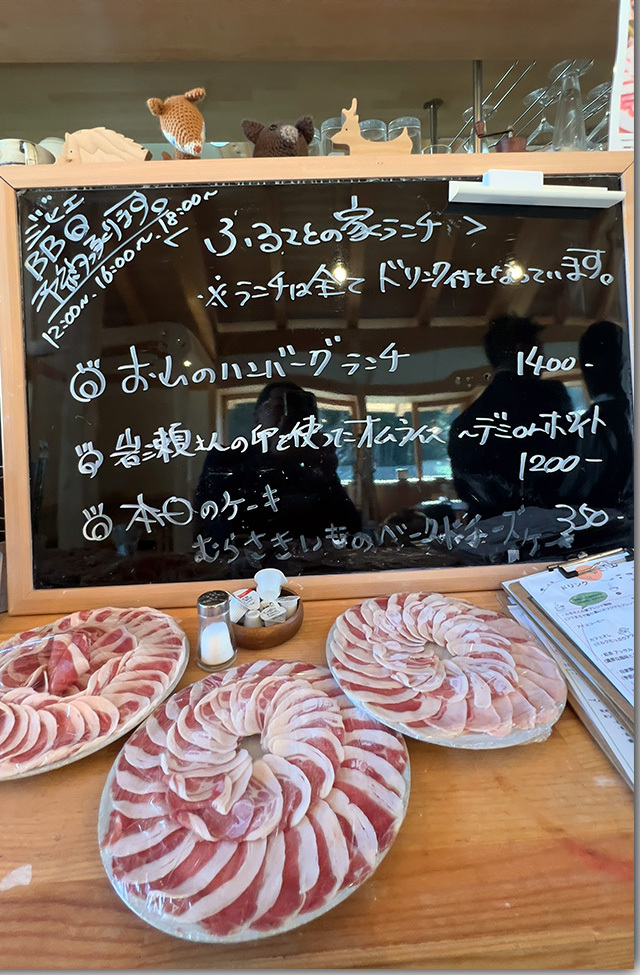 ジビエ
BBQ
予約うけたまわります。
12:00〜. 16:00〜. 18:00〜
＜ふるさとの家ランチ＞
※ランチは全てドリンク付となっています。
お山のハンバーグランチ 1400-
岩瀬さんの卵を使ったオムライス 〜デミorホワイト
1200-
本日のケーキ 350-
むらさきいものベークドチーズ
ケーキ
ドリンク